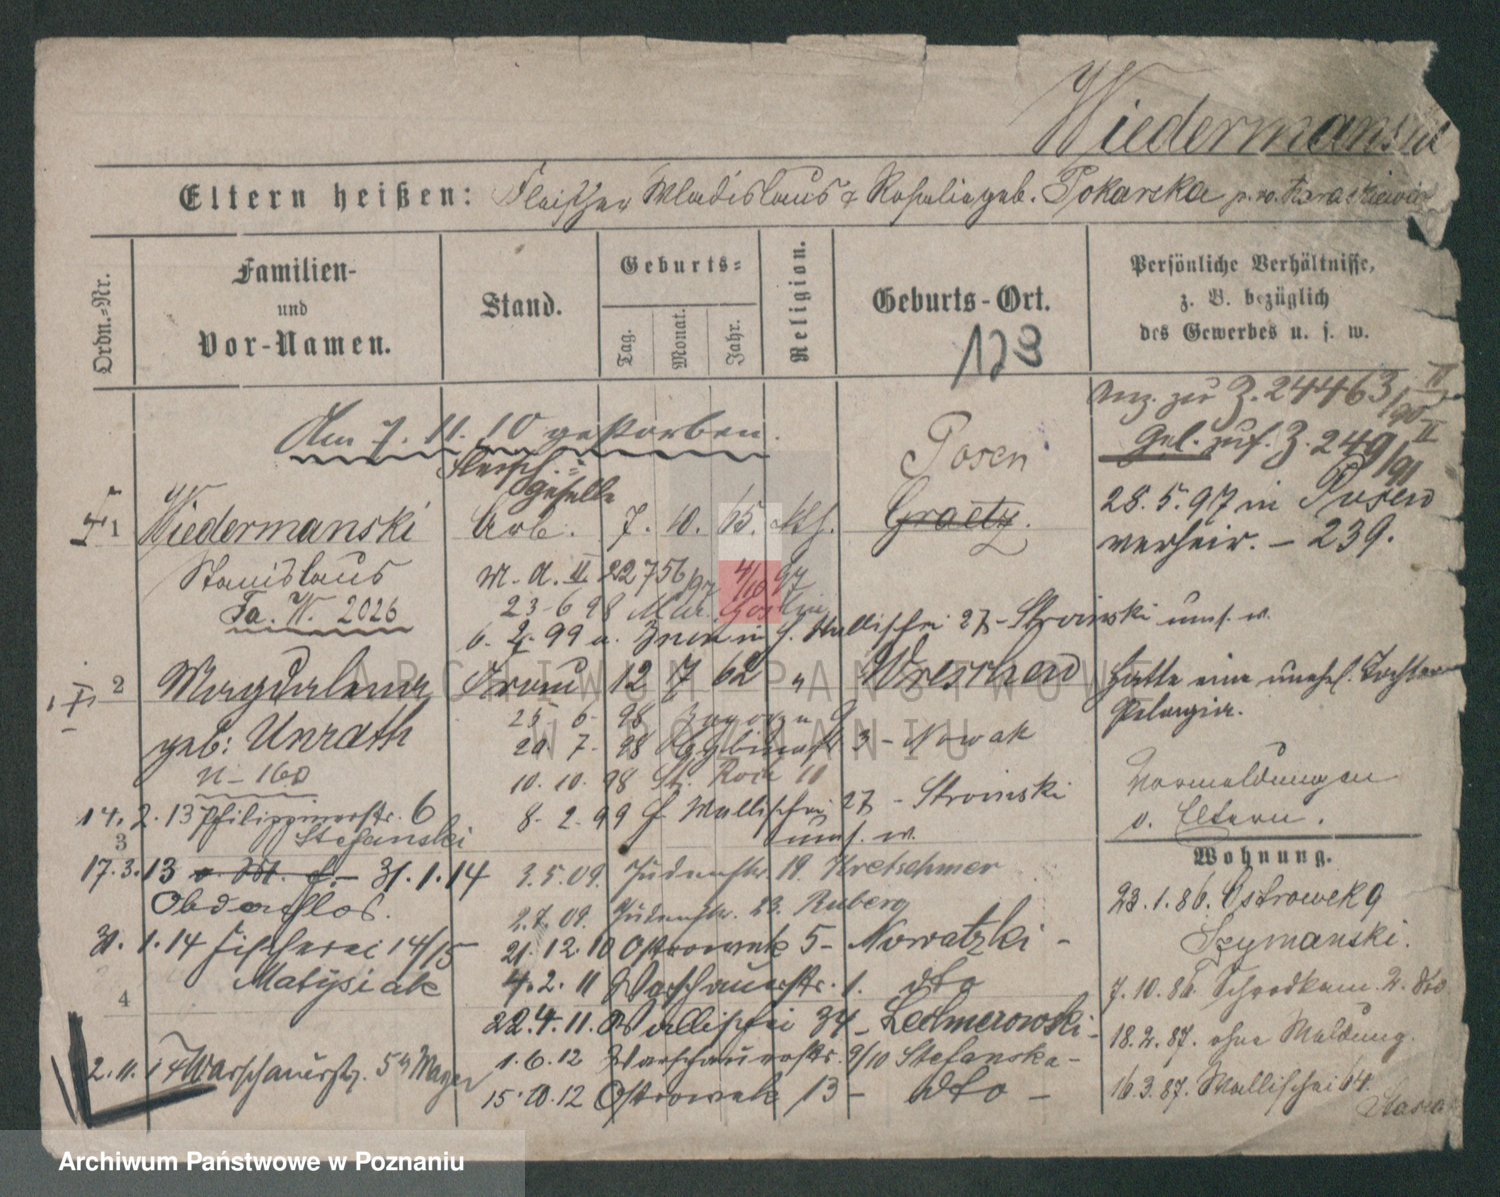 Wiedermanski
Eltern heißen: Fleischer Wladislaus & Rosalia geb. Pokarska p. v.
Ordn.-Nr.
Familien-
und
Vor-Namen.
Stand.
Geburts-
Tag.
Monat.
Jahr.
Religion.
Geburts-Ort.
Persönliche Verhältnisse,
z. B. bezüglich
des Gewerbes u. s. w.
123
Anz. zur Z. 24463/90 II
Gel. zuf. Z. 249/91 II
Am 7. 11. 10 gestorben.
Fleisch.=
geselle
Posen
1 Wiedermanski Arb. 7. 10. 65. Kth. Graetz.
28. 5. 97 in Posen
verheir. – 239.
Stanislaus M. A. II. 22756 4/10 97
Fa. W. 2026 23-6 98
6. 2. 99 Wallischei 27 - Stroinski u. s. w.
2 Magdalena Frau 12 7 62 " Wreschen
hatte eine unehel. Tochter
Pelagia.
geb: Unrath 25 6. 98
20. 7. 98 3 - Nowak
N – 160 10. 10. 98 St. Roch 10
Vormeldungen
v. Eltern.
14. 2. 13 Philippinenstr. 6 8. 2. 99 Wallischei 27 - Stroinski
u. s. w.
3 Stefanski
Wohnung.
17. 3. 13 31. 1. 14 3. 5. 09. Judenstr 19. Kretschmer
Obdachlos. 2. 7. 09. Judenstr. 23. Ruberg
23. 1. 86. Ostrowek 9
Szymanski.
31. 1. 14 Fischerei 14/15 21. 12. 10 Ostrowek 5 - Nowatzki -
Matysiak 4. 2. 11 Warschauerstr. 1. dto
7. 10. 86. Schrodkam. 2. dto
4 22. 4. 11. Wallischei 34 - Ledmerowski -
18. 2. 87. ohne Meldung.
2. 11. 14 Warschauerstr. 5 Mayer 1. 6. 12 Warschauerstr. 9/10 Stefanska -
15. 10. 12 Ostrowek 13 - dto -
16. 3. 87. Wallischei 64.
ARCHIWUM PAŃSTWOWE
W POZNANIU
Archiwum Państwowe w Poznaniu